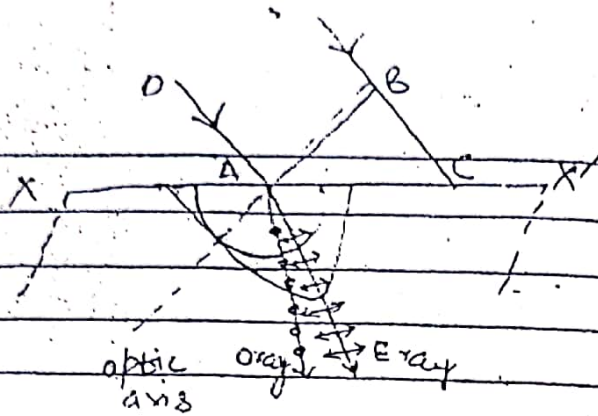 D
B
A
C
X
X'
optic
axis
Oray
E ray